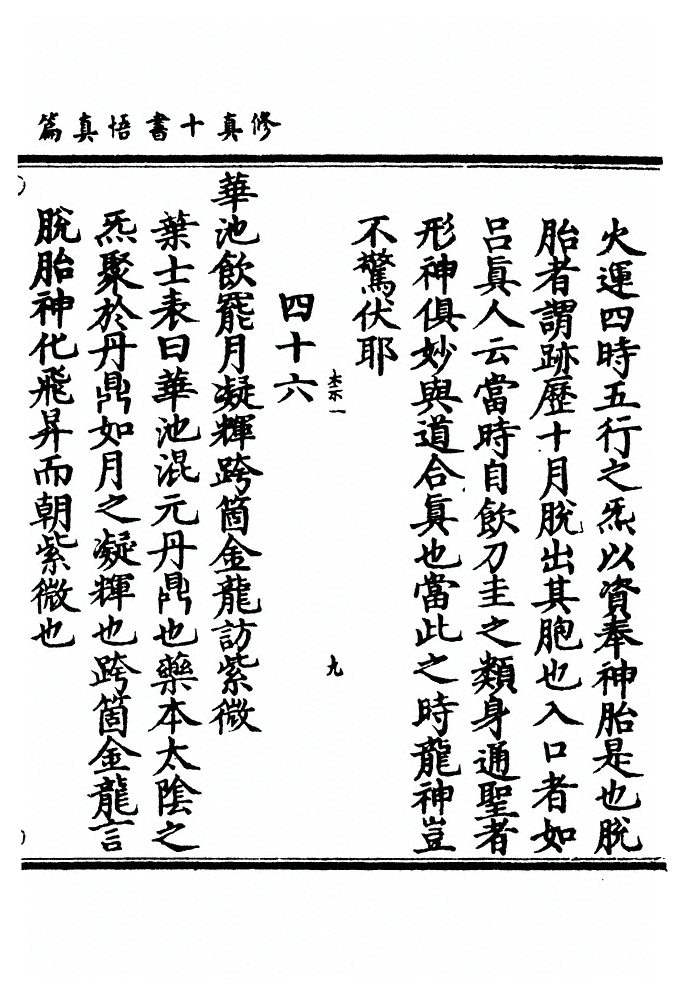 修真十書悟真篇
火運四時五行之炁以資奉神胎是也脫
胎者謂跡歷十月脫出其胞也入口者如
呂真人云當時自飲刀圭之類身通聖者
形神俱妙與道合真也當此之時龍神豈
不驚伏耶
九
四十六
華池飲罷月凝輝跨箇金龍訪紫微
葉士表曰華池混元丹鼎也藥本太陰之
炁聚於丹鼎如月之凝輝也跨箇金龍言
脫胎神化飛昇而朝紫微也